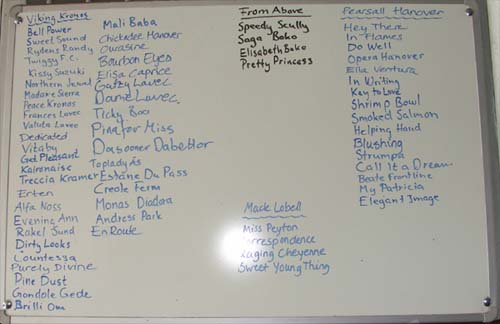 Viking Kronos
Bell Power
Sweet Sound
Rydens Randy
Twiggy F.C.
Kisty Suzuki
Northern Jewel
Madame Sierra
Peace Kronos
Frances Lavec
Valuta Lavec
Dedicated
Vitaby
Get Pleasant
Kairenaise
Treccia Kramer
Erten
Alfa Noss
Evening Ann
Rakel Sund
Dirty Looks
Countessa
Purely Divine
Pine Dust
Gondole Gede
Brilli Om
Mali Baba
Chickadee Hanover
Owasine
Bourbon Eyes
Elisa Caprice
Gatzy Lavec
Dame Lavec
Ticky Boo
Pinafor Miss
Dasooner Dabetlor
Toplady Ås
Estane Du Pass
Creole Ferm
Monas Diadora
Andress Park
En Route
From Above
Speedy Scully
Saga Boko
Elisabeth Boko
Pretty Princess
Mack Lobell
Miss Peyton
Correspondence
Raging Cheyenne
Sweet Young Thing
Pearsall Hanover
Hey There
In Flames
Do Well
Opera Hanover
Ella Ventura
In Writing
Key to Love
Shrimp Bowl
Smoked Salmon
Helping Hand
Blushing
Strumpa
Call It a Dream
Beate Frontline
My Patricia
Elegant Image